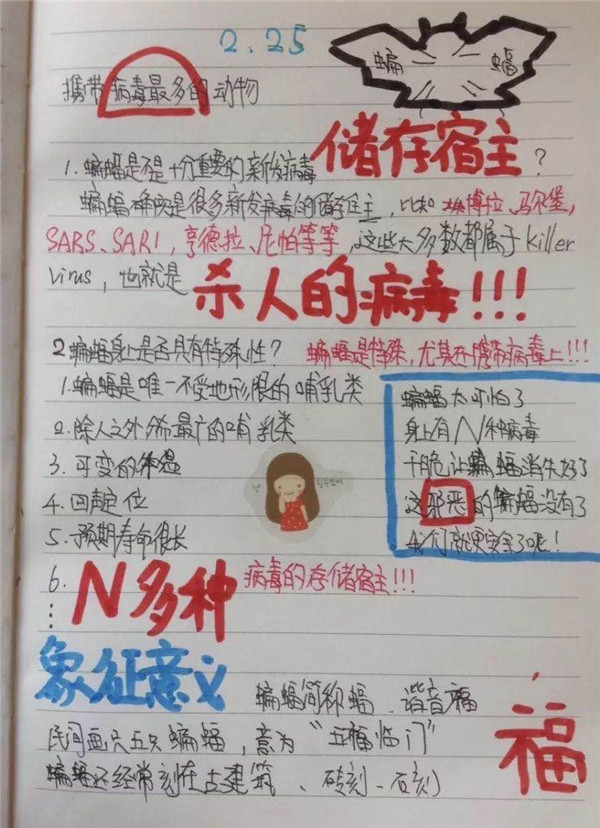 2.25
蝙 蝠
携带病毒最多的动物
1.蝙蝠是否是十分重要的新发病毒储存宿主?
蝙蝠确实是很多新发病毒的储存宿主,比如埃博拉、马尔堡,
SARS、SARI,亨德拉、尼帕等等,这些大多数都属于killer
virus,也就是杀人的病毒!!!
2.蝙蝠身上是否具有特殊性? 蝙蝠是特殊,尤其在携带病毒上!!!
1.蝙蝠是唯一不受地形限的哺乳类
2.除人之外分布最广的哺乳类
3.可变的体温
4.回声定位
5.预期寿命很长
6. N多种病毒的存储宿主!!!
⋮
蝙蝠太可怕了
身上有N种病毒
干脆让蝙蝠消失好了
这邪恶的蝙蝠没有了
我们就更安全了呢!
象征意义 蝙蝠简称蝠、谐音福
民间画只五只蝙蝠,意为“五福临门”
蝙蝠还经常刻在古建筑、砖刻、石刻
福